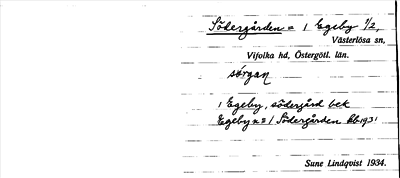 Södergården = 1 Egeby 1/2,
Västerlösa sn,
Vifolka hd, Östergötl. län.
sörgan
1 Egeby, södergård bek
Egeby n:o 1 Södergården Eb 1931
Sune Lindqvist 1934.